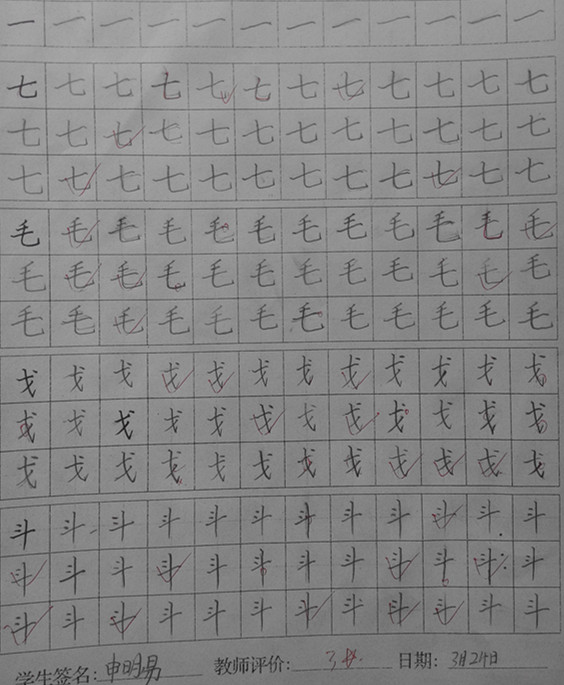 一 一 一 一 一 一 一 一 一 一 一 一
七 七 七 七 七 七 七 七 七 七 七 七
七 七 七 七 七 七 七 七 七 七 七 七
七 七 七 七 七 七 七 七 七 七 七 七
毛 毛 毛 毛 毛 毛 毛 毛 毛 毛 毛 毛
毛 毛 毛 毛 毛 毛 毛 毛 毛 毛 毛 毛
毛 毛 毛 毛 毛 毛 毛 毛 毛 毛 毛 毛
戈 戈 戈 戈 戈 戈 戈 戈 戈 戈 戈 戈
戈 戈 戈 戈 戈 戈 戈 戈 戈 戈 戈 戈
戈 戈 戈 戈 戈 戈 戈 戈 戈 戈 戈 戈
斗 斗 斗 斗 斗 斗 斗 斗 斗 斗 斗 斗
斗 斗 斗 斗 斗 斗 斗 斗 斗 斗 斗 斗
斗 斗 斗 斗 斗 斗 斗 斗 斗 斗 斗 斗
学生签名：申明易 教师评价： 日期：3月24日